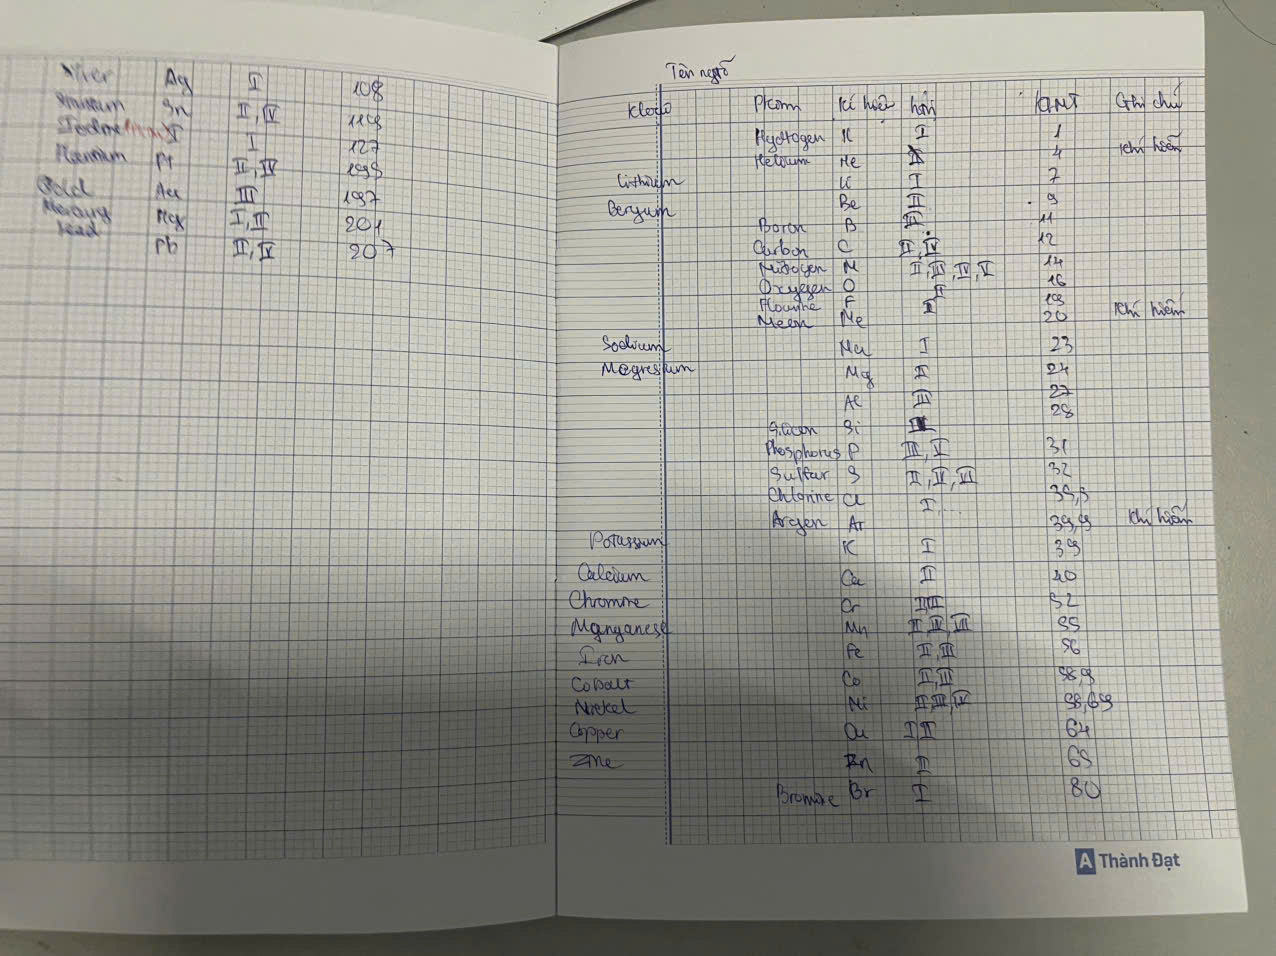 Silver Ag I 108
Sn II, IV 119
Iodine I I 127
Platinum Pt II, IV 195
Gold Au III 197
Mercury Hg I, II 201
Lead
Pb II, IV 207
Tên ngtố
Kloại Pkim Kí hiệu htrị KLNT Ghi chú
Hydrogen H I 1
Helium He 4 Khí hiếm
Lithium Li I 7
Beryium Be II 9
Boron B III 11
Carbon C II, IV 12
Nitrogen N II, III, IV, V 14
Oxygen O II 16
Flourine F I 19
Neon Ne 20 Khí hiếm
Sodium Na I 23
Magnesium Mg II 24
Al III 27
28
Silicon Si
Phosphorus P III, V 31
Sulfur S II, IV, VI 32
Chlorine Cl I, ... 35,5
Argon Ar 39,9 Khí hiếm
Potassium K I 39
Calcium Ca II 40
Chromine Cr II,III 52
Manganese Mn II IV, VII 55
Iron Fe II, III 56
Cobalt Co II, III 58,9
Nickel Ni II, III, IV 58,69
Copper Cu I II 64
Zinc Zn II 65
Bromine Br I 80
A Thành Đạt